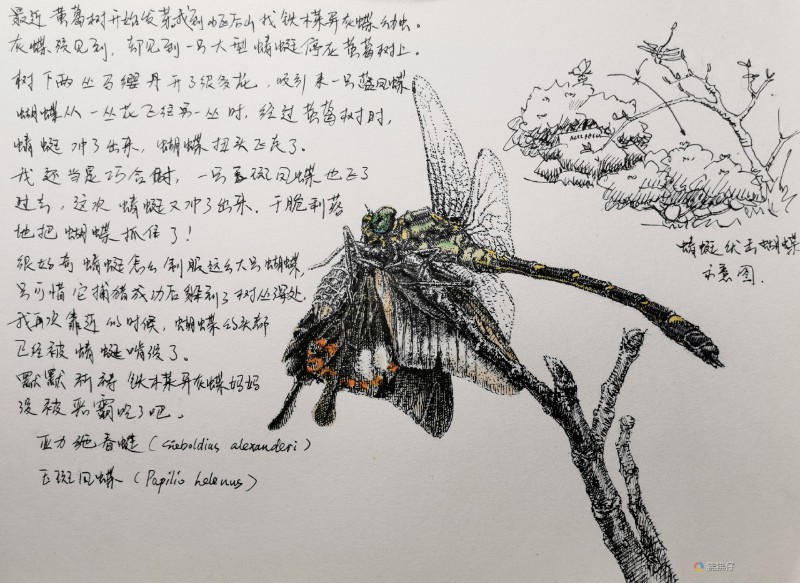 最近黄葛树开始发芽我到小区后山找铁木莱异灰蝶幼虫。
灰蝶没见到,却见到一只大型蜻蜓停在黄葛树上。
树下两丛马缨丹开了很多花,吸引来一只蓝凤蝶
蝴蝶从一丛花飞经另一丛时,经过黄葛树时,
蜻蜓冲了出来,蝴蝶扭头飞走了。
我还当是巧合时,一只玉斑凤蝶也飞了
过去,这次蜻蜓又冲了出来,干脆利落
地把蝴蝶抓住了!
很好奇蜻蜓怎么制服这么大只蝴蝶,
只可惜它捕猎成功后躲到了树丛深处,
我再次靠近的时候,蝴蝶的头都
已经被蜻蜓啃没了。
默默祈祷铁木莱异灰蝶妈妈
没被恶霸吃了吧。
亚力施春蜓(Sieboldius alexanderi)
玉斑凤蝶(Papilio helenus)
蜻蜓伏击蝴蝶
示意图.